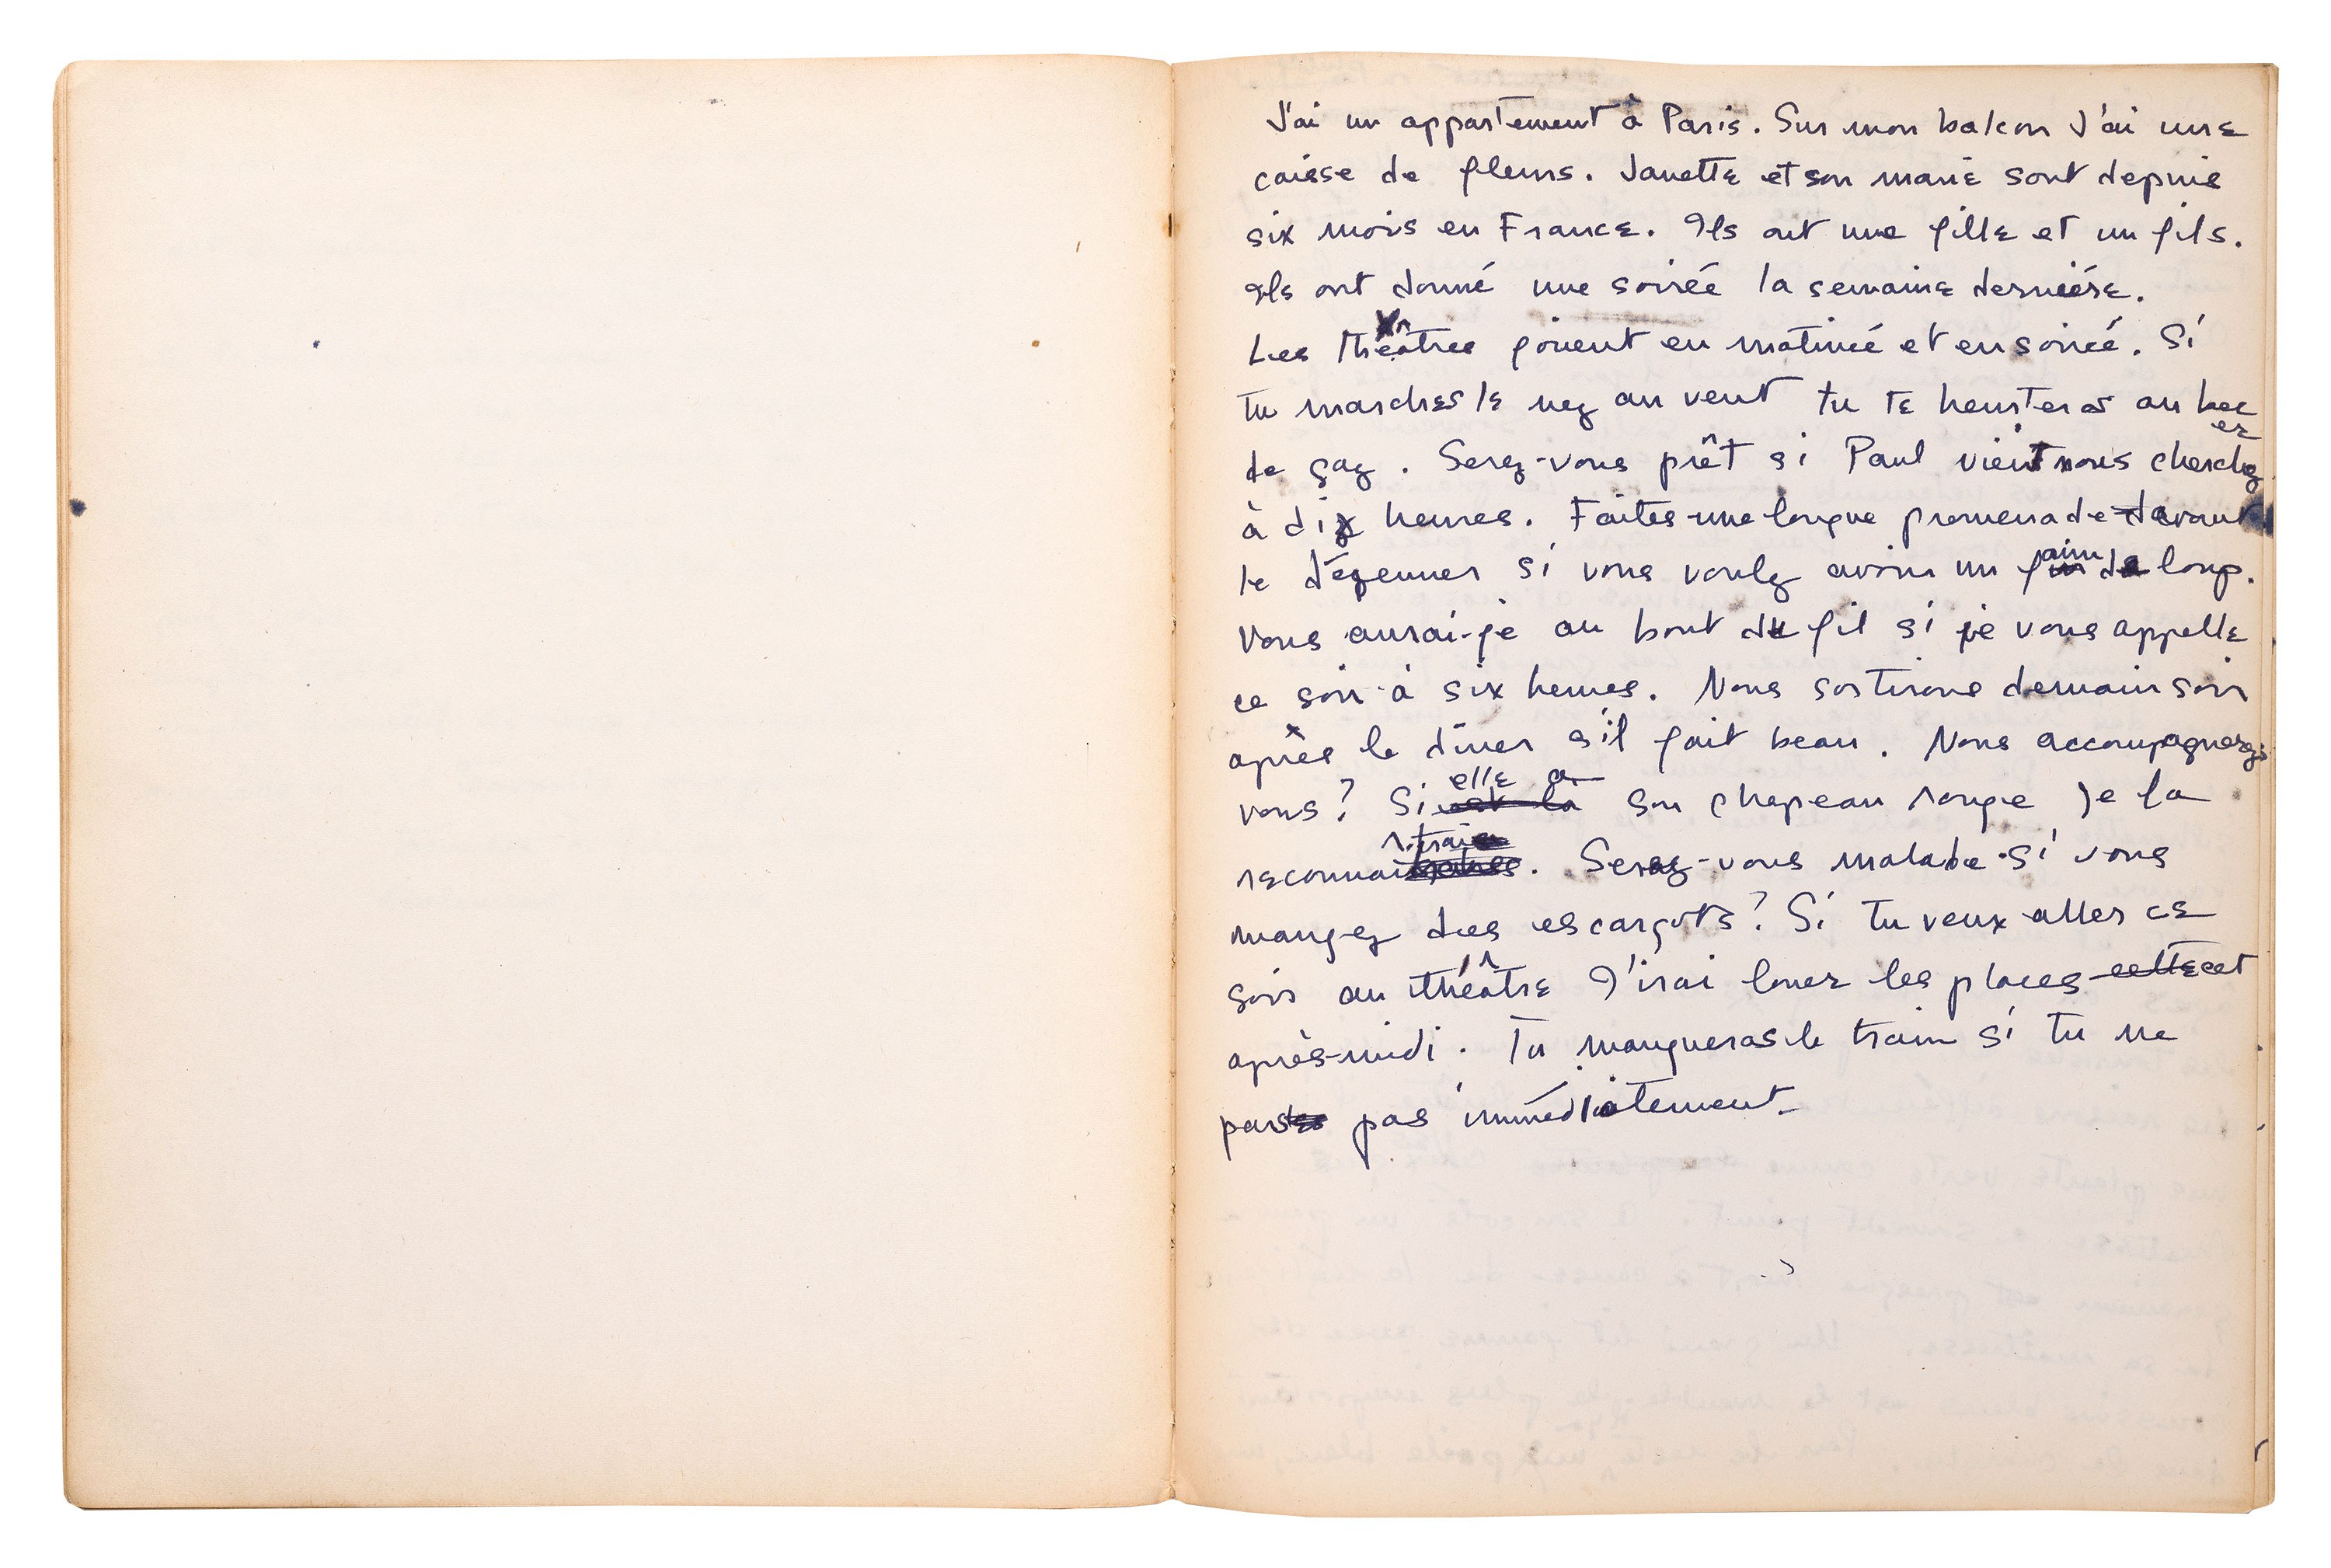 J'ai un appartement à Paris. Sur mon balcon J'ai une
caisse de fleurs. Janette et son marie sont depuis
six mois en France. Ils ont une fille et un fils.
Ils ont donné une soireé la semaine derniére.
Les théâtres jouent en matineé et en soireé. Si
tu marches le nez au vent tu te heurteras au bec
de gaz. Serez-vous prêt si Paul vient nous chercher
à dix heures. Faites une longue promenade avant
le déjeuner si vous voulez avoir un faim de loup.
Vous aurai-je au bout du fil si je vous appelle
ce soir à six heures. Nous sortirons demain soir
après le dîner s'il fait beau. Nous accompagnerez
vous? Si elle a son chapeau rouge je la
reconnaitrai. Serez-vous malade si vous
mangez des escargots? Si tu veux aller ce
soir au théâtre J'irai louer les places cet
après-midi. Tu manqueras le train si tu ne
pars pas immédiatement.